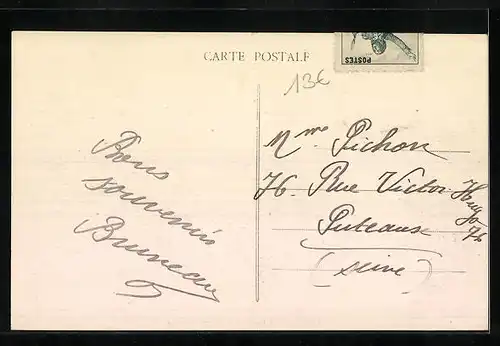 CARTE POSTALE
POSTES
13€
Bons
souvenirs
Bruneau
Mme Pichon
76 Rue Victor Hugo
76
Puteaux
(Seine)